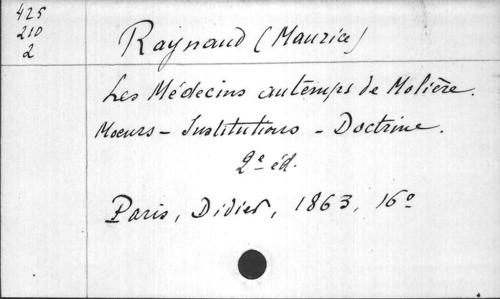 425
210
2
Raynaud (Maurice)
Les Médecins au temps de Molière.
Moeurs - Institutions - Doctrine.
2e éd.
Paris, Didier, 1863, 16o